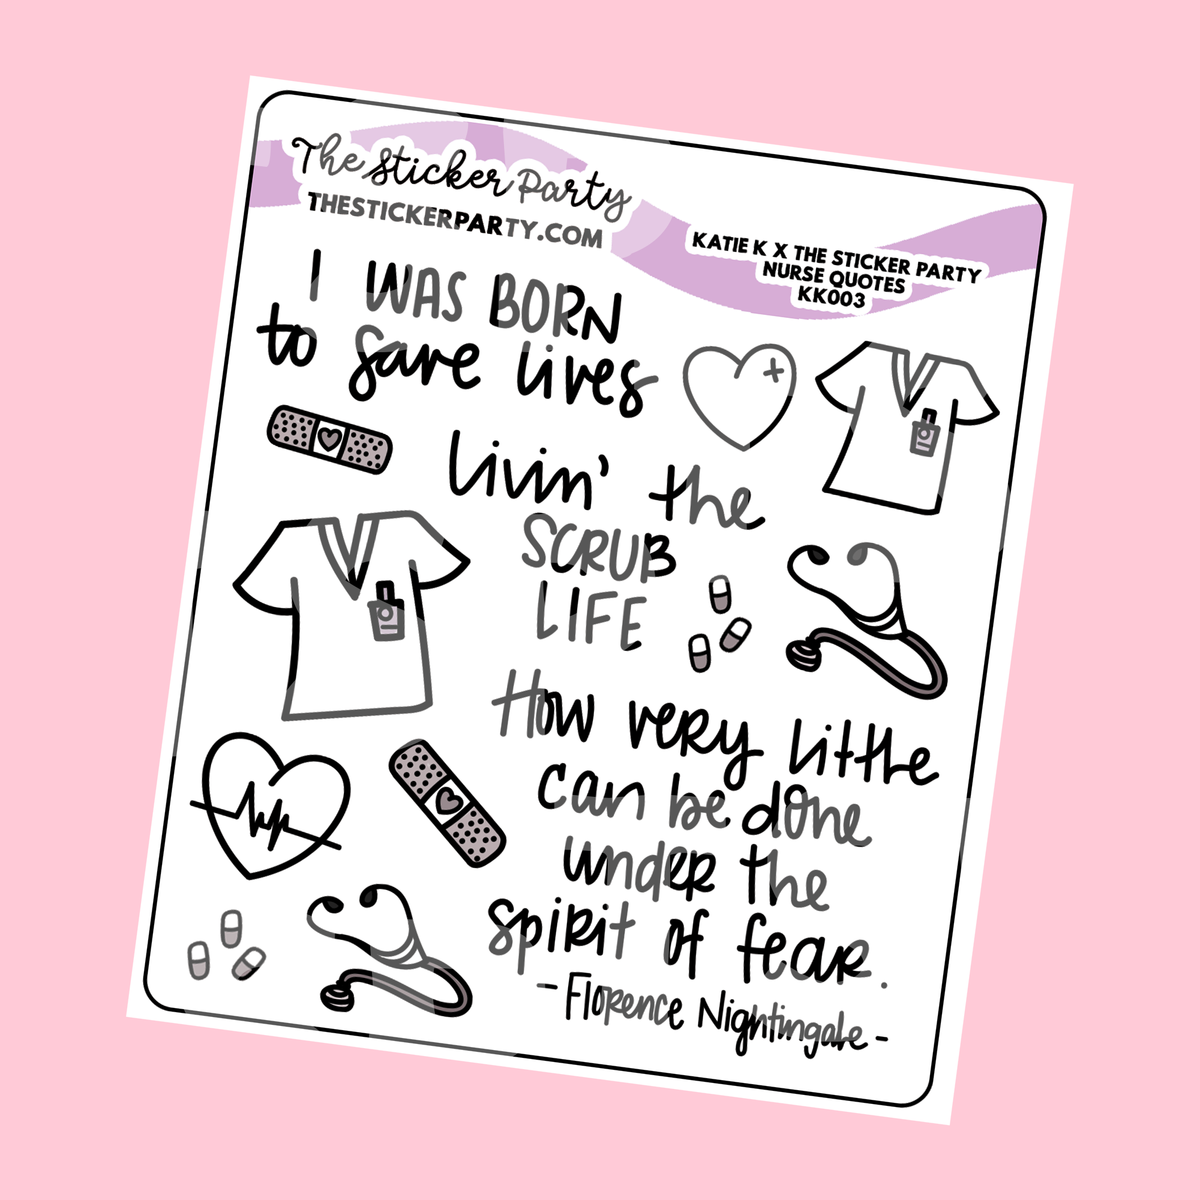 The Sticker Party
THESTICKERPARTY.COM
KATIE K X THE STICKER PARTY
NURSE QUOTES
KK003
I WAS BORN
to save lives
Livin' the
SCRUB
LIFE
How very little
can be done
under the
spirit of fear.
- Florence Nightingale -